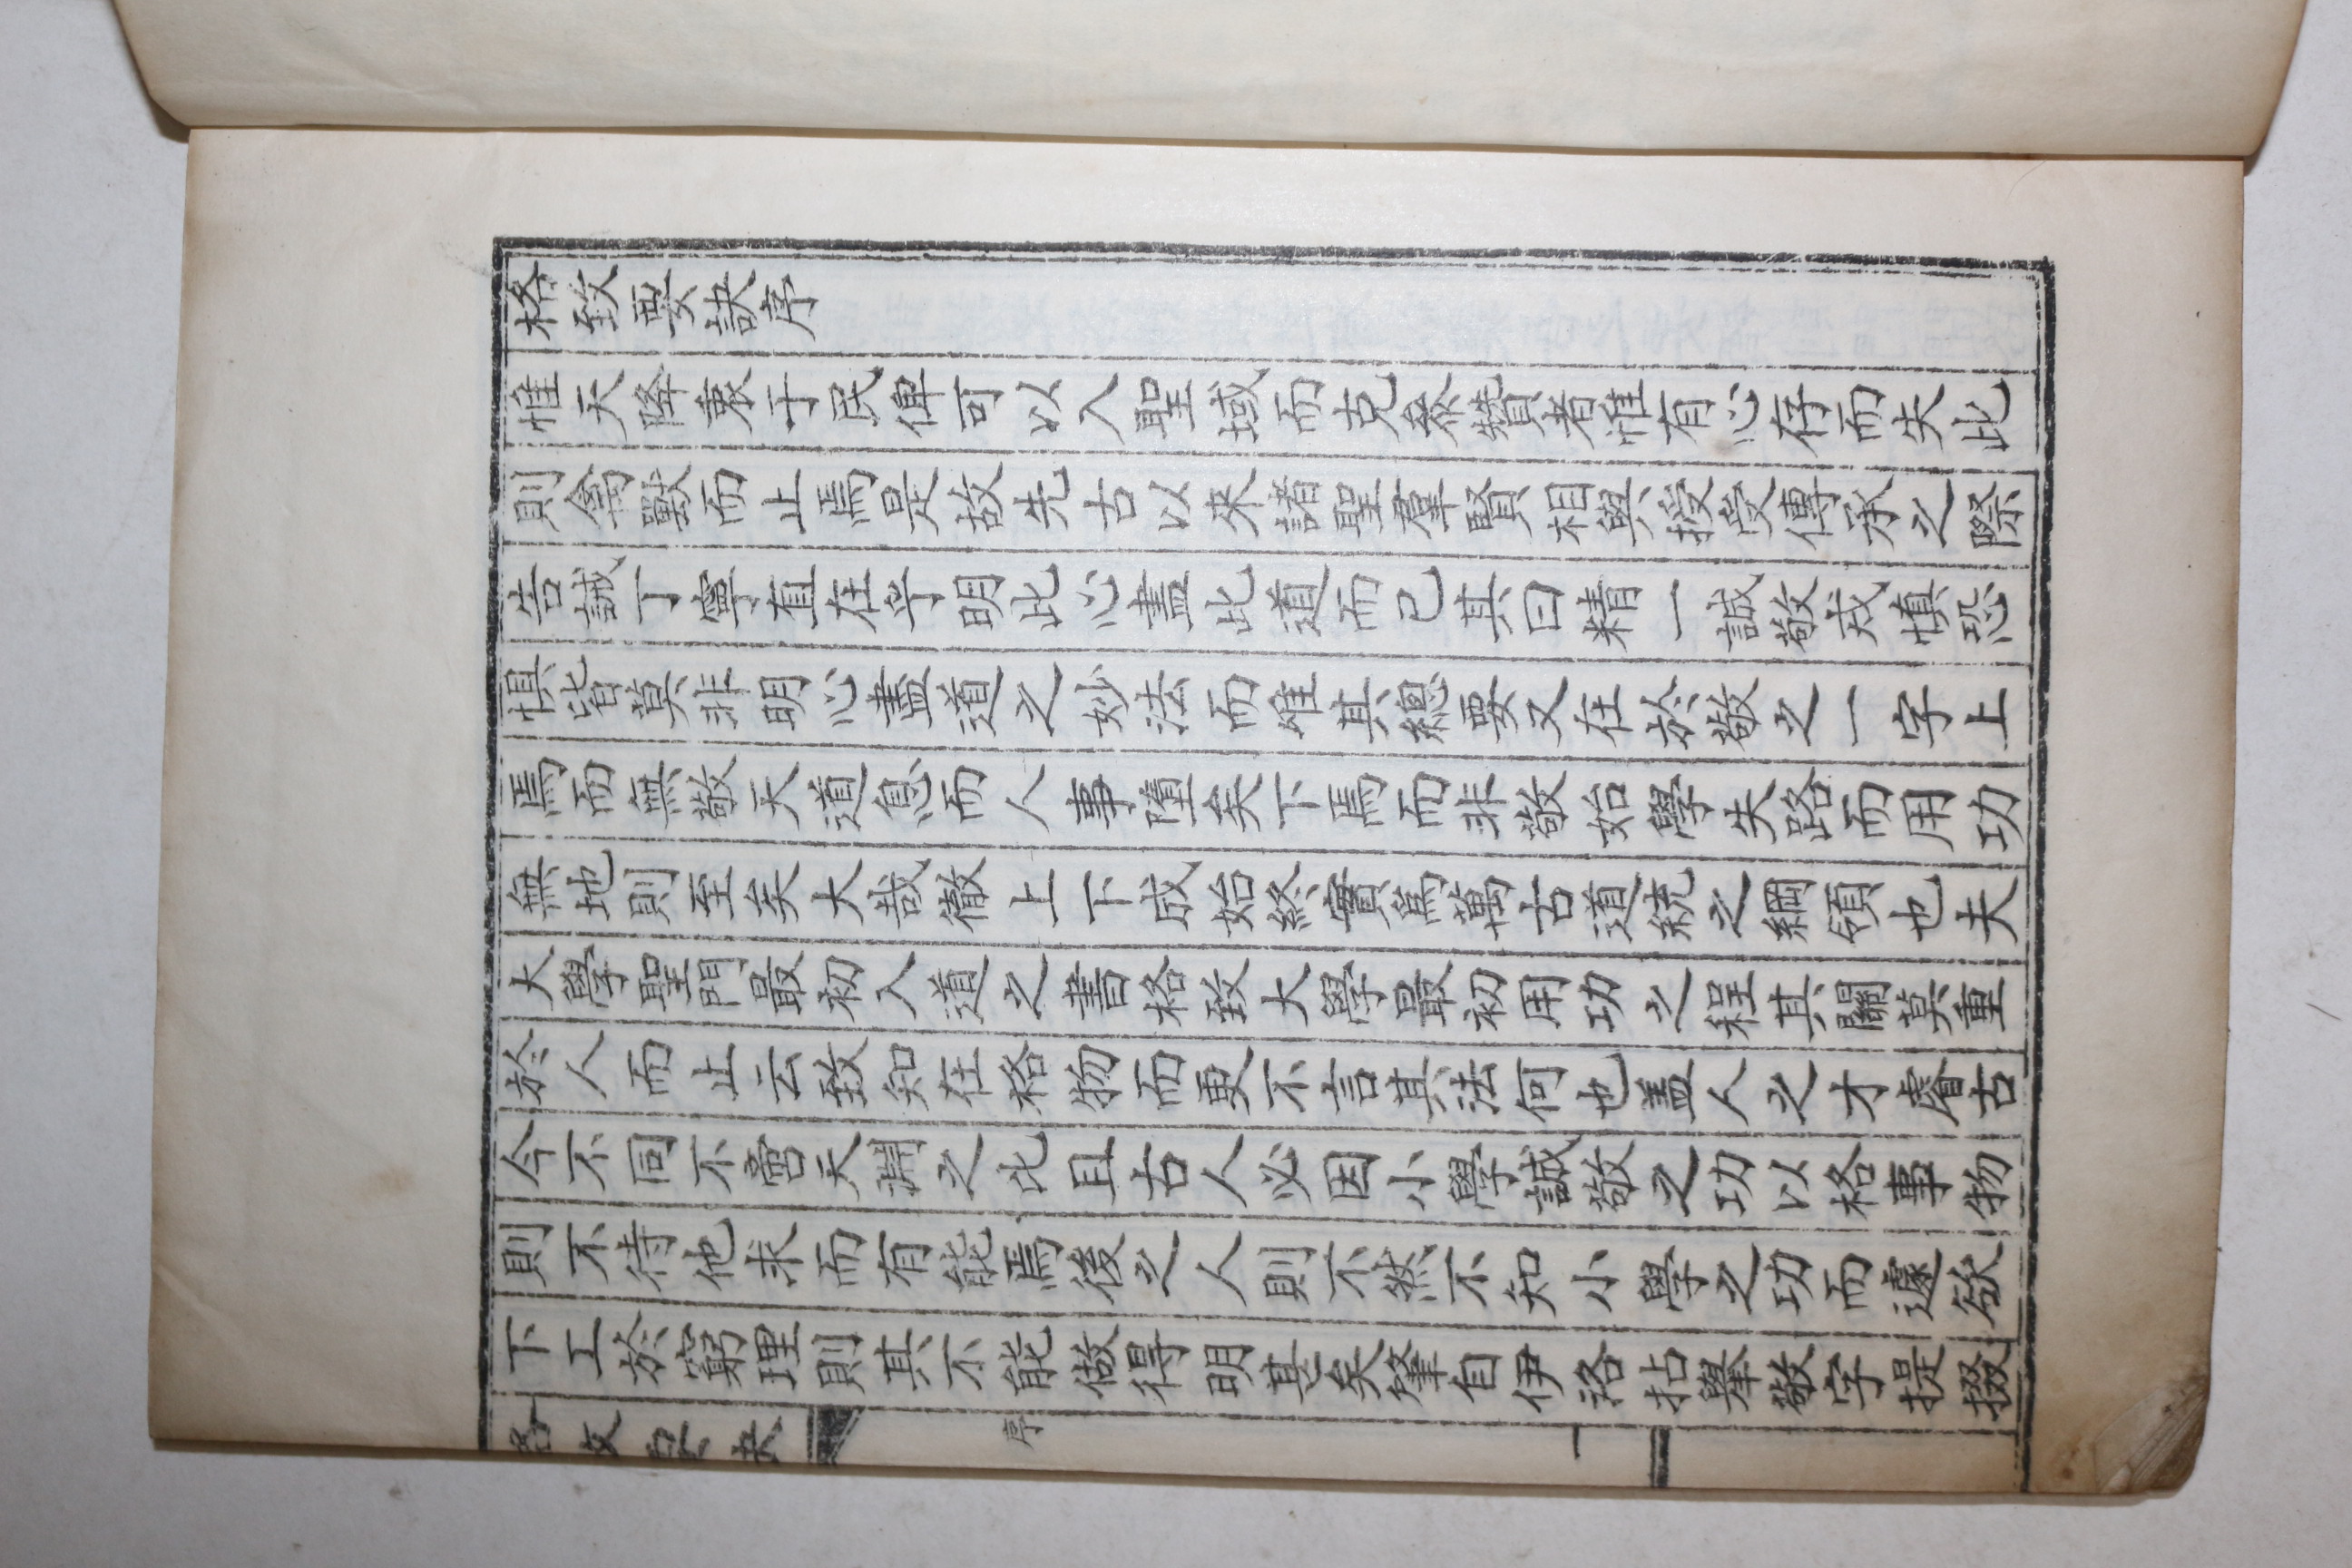 格致要訣序
惟天降衷于民俾可以入聖域而克叅贊者惟有心存而失此
則禽獸而止焉是故先古以來諸聖羣賢相與授受傳承之際
告誡丁寧直在乎明此心盡此道而已其曰精一誠敬戒愼恐
惧皆莫非明心盡道之妙法而唯其總要又在於敬之一字上
焉而無敬天道息而人事墮矣下焉而非敬始學失路而用功
無地則至矣大哉徹上下成始終實爲萬古道統之綱領也夫
大學聖門最初入道之書格致大學最初用功之程其關莫重
於人而止云致知在格物而更不言其法何也盖人之才睿古
今不同不啻天淵之比且古人必因小學誠敬之功以格事物
則不待他求而有能焉後之人則不然不知小學之功而遽欲
下工於窮理則其不能做得明甚矣肇自伊洛拈擧敬字提掇
格致要訣
序
一